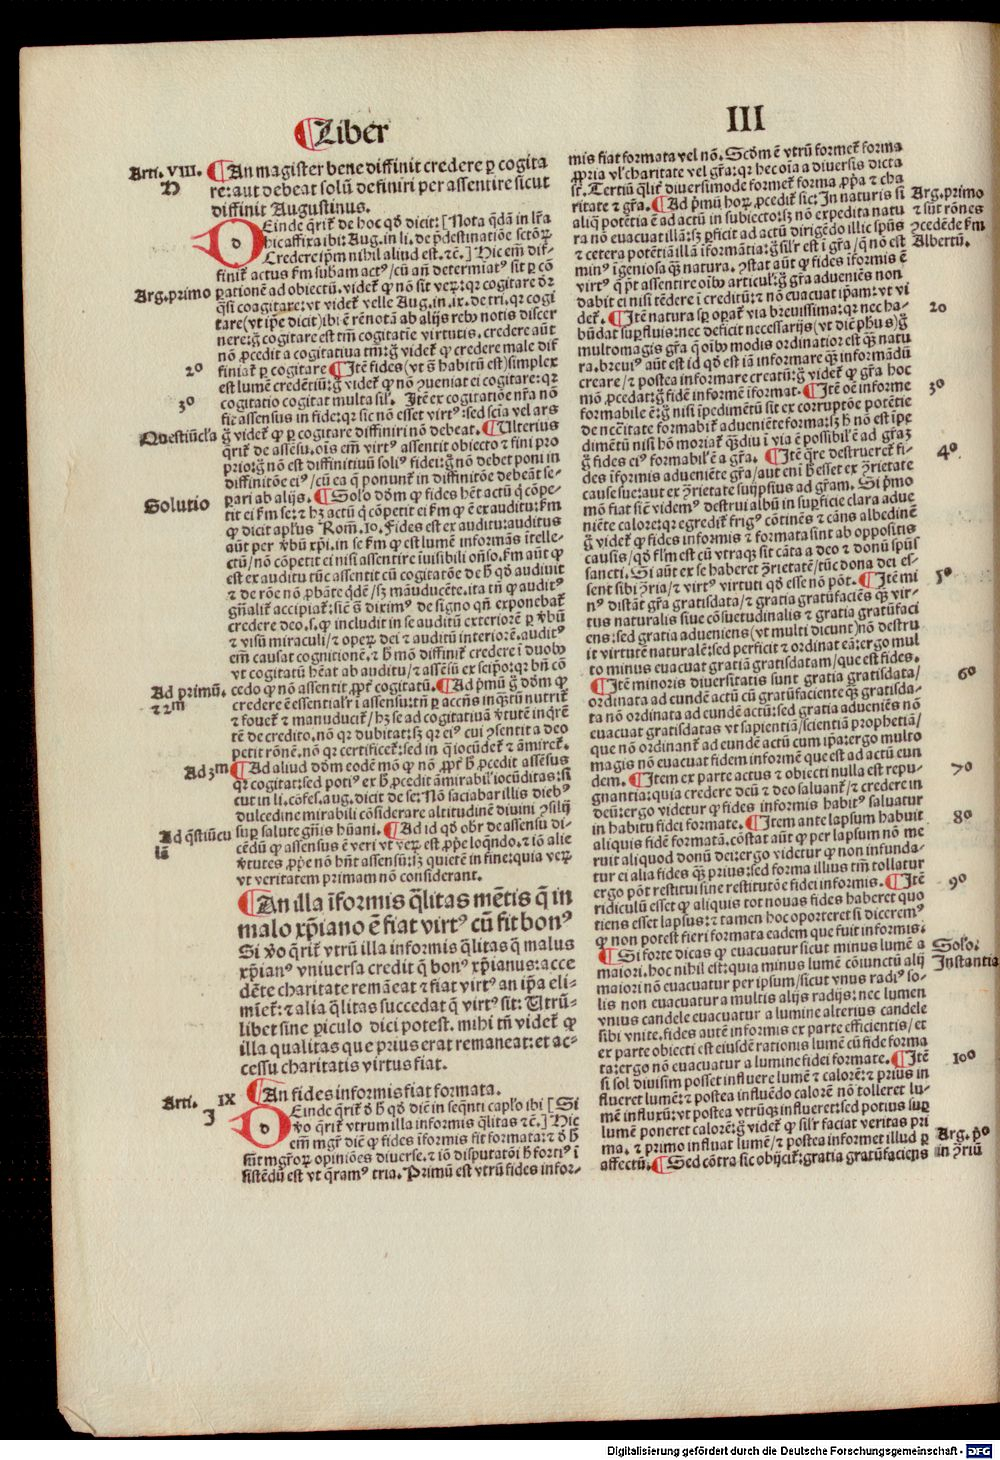 ¶Liber
III
Arti. VIII.
D
¶An magister bene diffinit credere ꝑ cogita
re: aut debeat solū definiri per assentire sicut
diffinit Augustinus.
DEinde q̄rit̄ de hoc qd̄ dicit: [Nota qdā in lr̄a
hic affixa ibi: Aug. in li. de p̄destinatiōe sctōꝝ.
Credere ip̄m nihil aliud est. ⁊c̄.] Hic em̄ dif-
finit̄ actus
Arg. primo
ꝑationē ad obiectū. videt̄ ꝙ nō sit veꝝ: qꝛ cogitare
q̄si coagitare: vt videt̄ velle Aug. in. ix. de tri. qꝛ cogi
tare (vt ip̄e dicit) ibi
nere: ḡ cogitare est tm̄ cogitatiē virtutis. credere aūt
nō ꝓcedit a cogitatiua tm̄: ḡ videt̄ ꝙ credere male dif
2º
finiat̄ ꝑ cogitare ¶Itē fides (vt s̄ habitū est) simplex
est lumē credētiū: ḡ videt̄ ꝙ nō ꝯueniat ei cogitare: qꝛ
3º
cogitatio cogitat multa sil̓. Itē ex cogitatiōe nr̄a nō
fit assensus in fide: qꝛ sic nō esset virtꝰ: sed scia vel ars
Questiūcl̓a
ḡ videt̄ ꝙ ꝑ cogitare diffiniri nō debeat. ¶Ulterius
q̄rit̄ de assēsu. oīs em̄ virtꝰ assentit obiecto ⁊ fini pro
prio: ḡ nō est diffinitiuū soliꝰ fidei: ḡ nō debet poni in
diffinitōe eiꝰ / cū ea q̄ ponunt̄ in diffinitōe debeāt se-
Solutio
ꝑari ab alijs. ¶Solo dōm ꝙ fides h̄et actū q̄ cōpe-
tit ei
ꝙ dicit apl̓us Rom. 10. Fides est ex auditu: auditus
aūt per v̓bū xp̄i. in se
ctū / nō cōpetit ei nisi assentire iuisibili
est ex auditu tūc assentit cū cogitatōe de h̄ qd̄ audiuit
⁊ de rōe nō ꝓbāte
gn̄alit̄ accipiat̄: sic̄ s̄ diximꝰ de signo qn̄ exponebat̄
credere deo. s. ꝙ includit in se auditū exteriorē ꝑ v̓bū
⁊ visū miraculi / ⁊ opeꝝ dei ⁊ auditū interiorē. auditꝰ
em̄ causat cognitionē. ⁊ h̄ mō diffinit̄ credere ī duobꝰ
vt cogitatū h̄eat ab auditu / ⁊ assēsū ex seip̄o: qꝛ bn̄ cō
Ad primū.
⁊ 2m
cedo ꝙ nō assentit ꝓpt̄ cogitatū. ¶Ad p̄mū ḡ dōm ꝙ
credere ē essentialr̓ ī assensu: tn̄ ꝑ accn̄s
⁊ fouet̄ ⁊ manuducit̄ /
tē de credito. nō qꝛ dubitat: sꝫ qꝛ eiꝰ cui ꝯsentit a deo
petit rōnē. nō qꝛ certificet̄: sed in q̄ iocūdet̄ ⁊ āmiret̄.
Ad 3m
¶Ad aliud dōm eodē mō ꝙ nō ꝓpt̄ h̄ ꝓcedit assēsus
qꝛ cogitat: sed potiꝰ ex h̄ ꝓcedit āmirabil̓ iocūditas: si
cut in li. cōfes. aug. dicit de se: Nō saciabar illis diebꝰ
dulcedine mirabili cōsiderare altitudinē diuini ꝯsilij
Ad q̄stiūcu
lā
suꝑ salute gn̄is hūani. ¶Ad id qd̄
cēdū ꝙ assensus ē veri vt veꝝ est ꝓpe loqn̄do. ⁊ iō alie
v̓tutes ꝓpe nō hn̄t assensū: sꝫ quietē in fine: quia veꝝ
vt veritatem primam nō considerant.
¶An illa īformis q̄litas mētis q̄ in
malo xp̄iano ē fiat virtꝰ cū fit bonꝰ
Si v̓o q̄rit̄ vtrū illa informis q̄litas q̄ malus
xp̄ianꝰ vniuersa credit q̄ bonꝰ xp̄ianus: acce
dēte charitate remāeat ⁊ fiat virtꝰ an ip̄a eli-
mīet̄: ⁊ alia q̄litas succedat q̄ virtꝰ sit: Utrū-
libet sine ꝑiculo dici potest. mihi tn̄ videt̄ ꝙ
illa qualitas que prius erat remaneat: et ac-
cessu charitatis virtus fiat.
Arti. IX
J
¶An fides informis fiat formata.
DEinde q̄rit̄ d̓ h̄ qd̄ diēm in seqn̄ti cap̄lo ibi [Si
v̓o q̄rit̄ vtrum illa informis q̄litas ⁊c̄.] Hic
em̄ mgr̄ diēm ꝙ fides īformis fit formata: ⁊ d̓ h̄
sūt mgr̄oꝝ opiniões diuerse. ⁊ iō disputatōi h̄ fortiꝰ ī
sistēdū est vt q̄ramꝰ tria. Primū est vtrū fides infor-
mis fiat formata vel nō. Scd̄m ē vtrū formet̄ forma
ꝓpria vl̓ charitate vel gr̄a: qꝛ hec oīa a diuersis dicta
st̄. Tertiū q̄lit̄ diuersimode formet̄ forma ꝓp̄a ⁊ cha
Arg. primo
⁊ sūt rōnes
ꝯcedēde s̄m
Albertū.
ritate ⁊ gr̄a. ¶Ad p̄mū hoꝝ ꝓcedit̄ sic: In naturis si
aliq̄ potētia ē ad actū in subiecto: sꝫ nō expedita natu
ra nō euacuat illā: sꝫ ꝑficit ad actū dirigēdo illic spūs
⁊ cetera potētiā illā īformātia: ḡ sil̓r est ī gr̄a / q̄ nō est
minꝰ īgeniosa q̄ꝫ natura. ꝯstat aūt ꝙ fides īformis ē
virtꝰ q̄ pōt assentire oībꝰ articul̓: ḡ gr̄a adueniēs non
dabit ei nisi tēdere ī creditū: ⁊ nō euacuat ip̄am: vt vi
2º
det̄. ¶Itē natura sꝑ opat̄ via breuissima: qꝛ nec ha-
būdat suꝑfluis: nec deficit necessarijs (vt diēm
multomagis gr̄a q̄ oībꝰ modis ordinatior est q̄ꝫ natu
ra. breuiꝰ aūt est id qd̄ est iā informare q̄ꝫ informādū
creare / ⁊ postea informare creatū: ḡ videt̄ ꝙ gr̄a hoc
3º
mō ꝓcedat: ḡ fidē informē īformat. ¶Itē oē informe
formabile ē: ḡ nisi īpedimētū sit ex corruptōe potētie
de ncc̄itate formabit̄ adueniēte forma: sꝫ h̄ nō est īpe
dimētū nisi
4º
ḡ fides eiꝰ formabil̓ ē a gr̄a. ¶Itē q̄re destrueret̄ fi-
des īformis adueniēte gr̄a / aut eni h̄ esset ex ꝯrietate
cause sue: aut ex ꝯrietate suijpsius ad gr̄am. Si p̄mo
mō fiat sic̄ videmꝰ destrui albū in suꝑficie clara adue
niēte calore: qꝛ egredit̄ frigꝰ cōtinēs ⁊ cāns albedinē
ḡ videt̄ ꝙ fides informis ⁊ formata sint ab oppositis
causis / qd̄ fl̓m est cū vtraqꝫ sit cāta a deo ⁊ donū spūs
sancti. Si aūt ex se haberet ꝯrietatē / tūc dona dei es-
5º
sent sibi ꝯria / ⁊ virtꝰ virtuti qd̄ esse nō pōt. ¶Itē mi
nꝰ distāt gr̄a gratisdata / ⁊ gratia gratūfaciēs q̄ꝫ vir-
tus naturalis siue cōsuetudinalis ⁊ gratia gratūfaci
ens: sed gratia adueniens (vt multi dicunt) nō destru
it virtutē naturalē: sed perficit ⁊ ordinat eā: ergo mul
to minus euacuat gratiā gratisdatam / que est fides.
6º
¶Itē minoris diuersitatis sunt gratia gratisdata /
ordinata ad eundē actū cū gratūfaciente q̄ꝫ gratisda-
ta nō ordinata ad eundē actū: sed gratia adueniēs nō
euacuat gratisdatas vt sapientiā / scientiā prophetiā /
que nō ordinant̄ ad eundē actū cum ip̄a: ergo multo
magis nō euacuat fidem informē que est ad actū eun
7º
dem. ¶Item ex parte actus ⁊ obiecti nulla est repu-
gnantia: quia credere deū ⁊ deo saluant̄ / ⁊ credere in
deū: ergo videtur ꝙ fides informis habitꝰ saluatur
8º
in habitu fidei formate. ¶Item ante lapsum habuit
aliquis fidē formatā. cōstat aūt ꝙ per lapsum nō me
ruit aliquod donū dei: ergo videtur ꝙ non infunda-
tur ei alia fides q̄ꝫ prius: sed forma illius tm̄ tollatur
9º
ergo pōt restitui sine restitutōe fidei informis. ¶Itē
ridiculū esset ꝙ aliquis tot nouas fides haberet quo
tiens esset lapsus: ⁊ tamen hoc oporteret si diceremꝰ
ꝙ non potest fieri formata eadem que fuit informis.
Solo.
Instantia
¶Si forte dicas ꝙ euacuatur sicut minus lumē a
maiori. hoc nihil est: quia minus lumē cōiunctū alij
maiori nō euacuatur per ipsum / sicut vnus radiꝰ so-
lis non euacuatur a multis alijs radijs: nec lumen
vnius candele euacuatur a lumine alterius candele
sibi vnite. fides autē informis ex parte efficientis / et
ex parte obiecti est eiusdē rationis lumē cū fide forma
10º
ta: ergo nō euacuatur a lumine fidei formate. ¶Itē
si sol diuisim posset influere lumē ⁊ calorē: ⁊ prius in
flueret lumē: ⁊ postea influēdo calorē nō tolleret lu-
mē influxū: vt postea vtrūqꝫ influeret: sed potius suꝑ
lumē poneret calorē: ḡ videt̄ ꝙ sil̓r faciat veritas pri
Arg. p̄º
in ꝯriū
ma. ⁊ primo influat lumē / ⁊ postea informet illud ꝑ
affectū. ¶Sed cōtra sic obijcit̄: gratia gratūfaciens
Digitalisierung gefördert durch die Deutsche Forschungsgemeinschaft - DFG